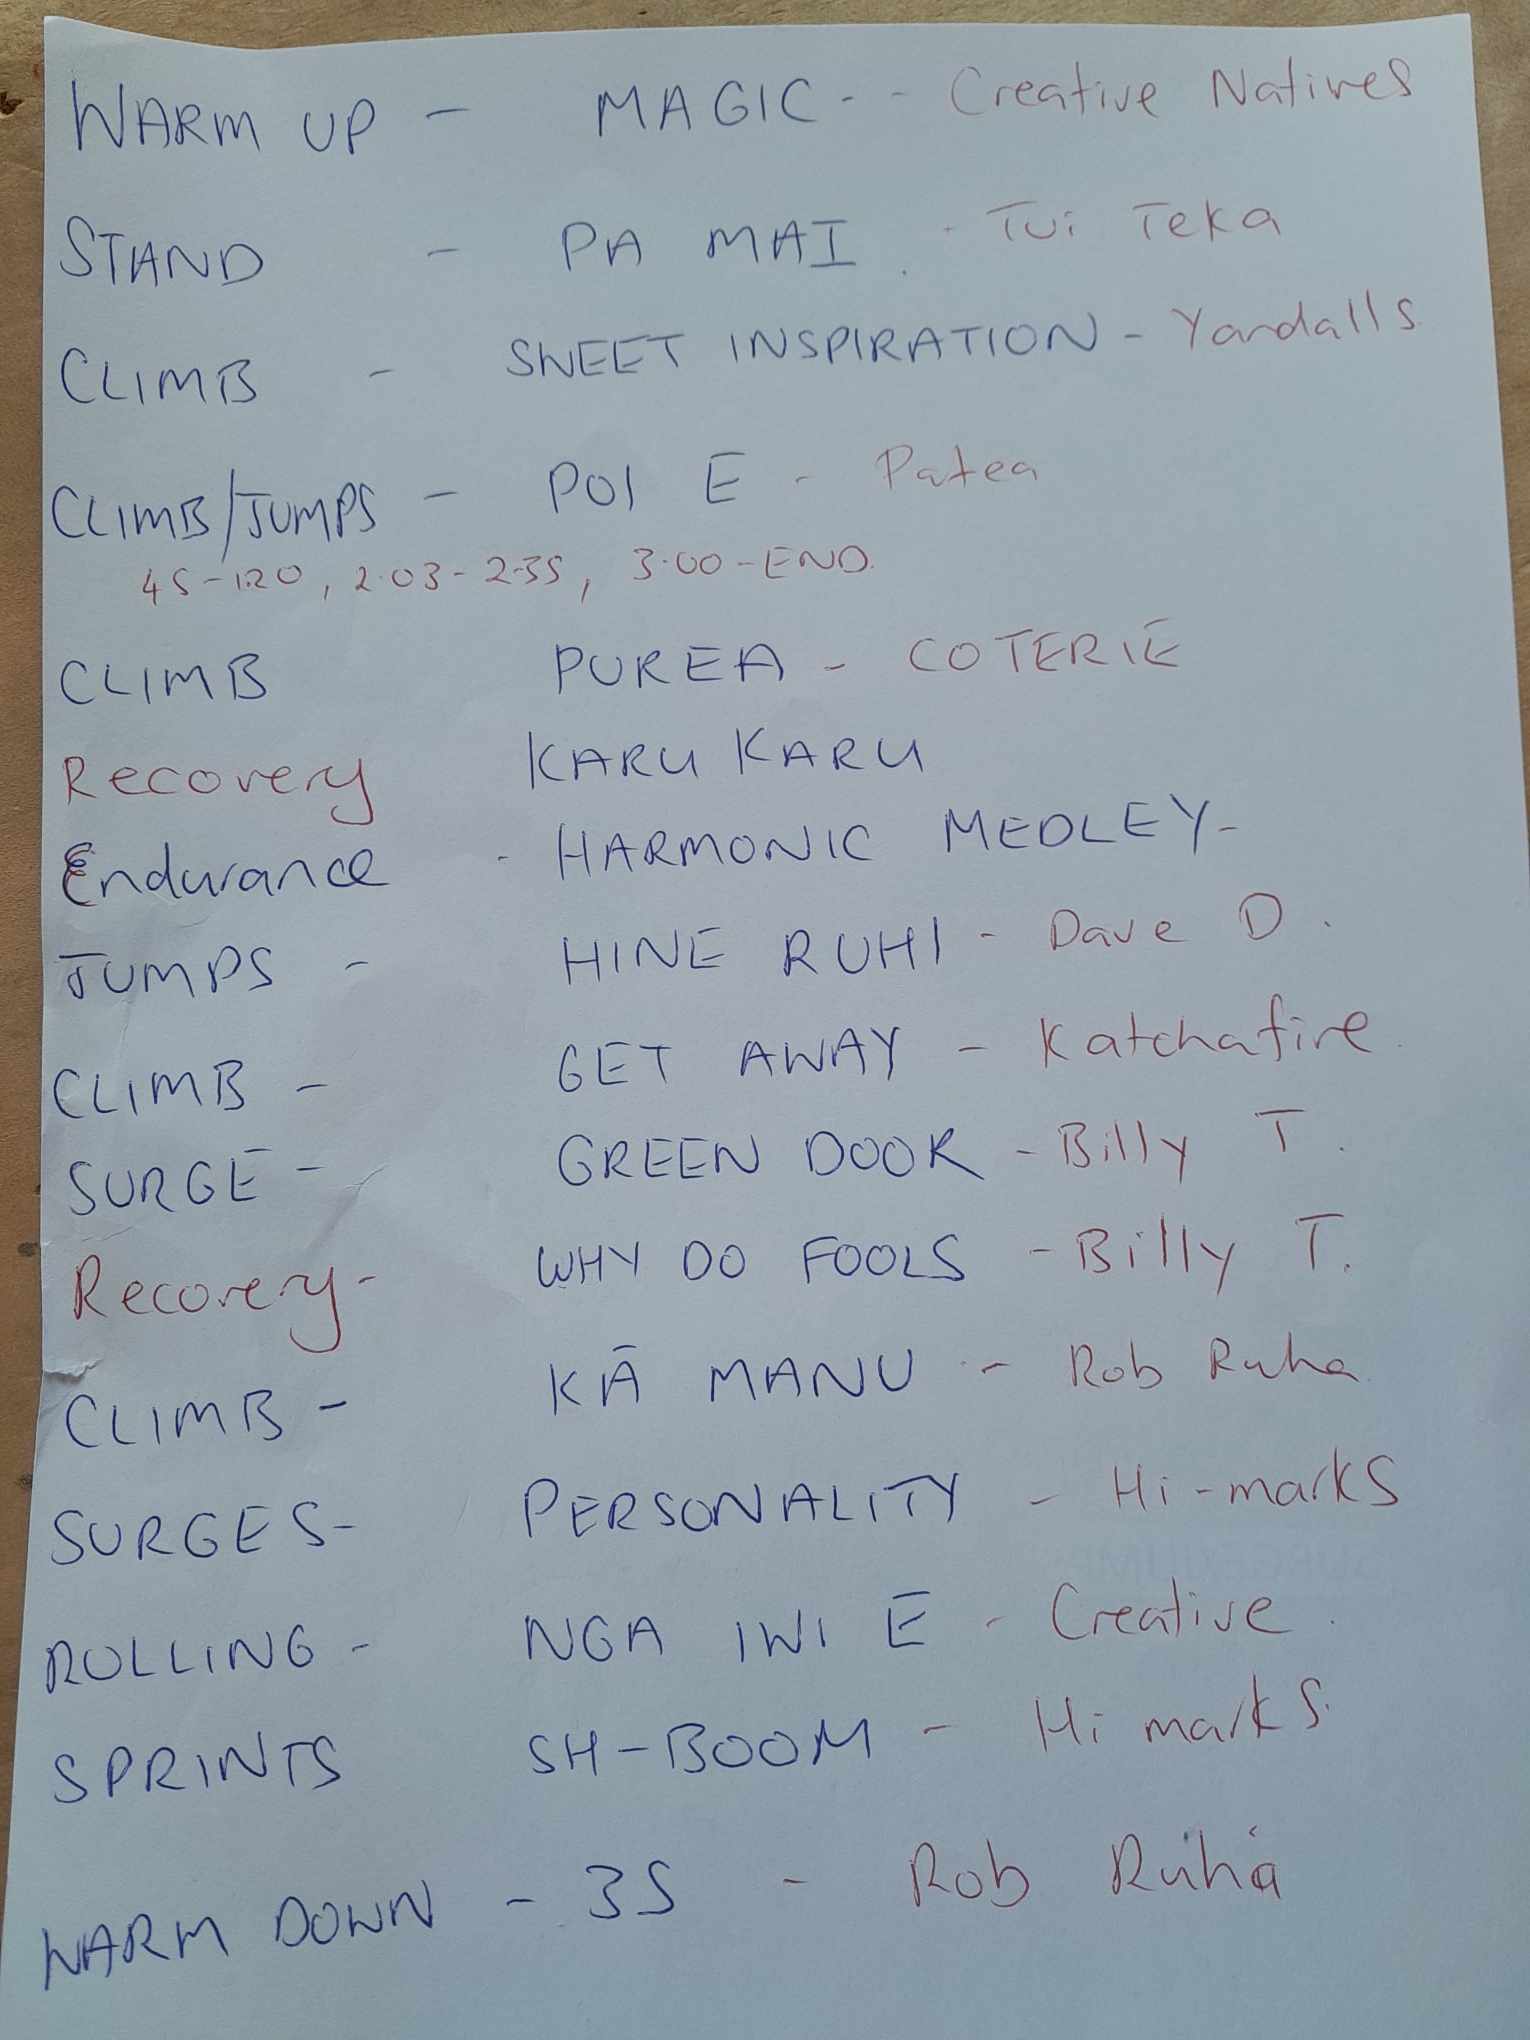 WARM UP - MAGIC - - Creative Natives
STAND - PA MAI - Tui Teka
CLIMB - SWEET INSPIRATION - Yandalls
CLIMB/JUMPS - POI E - Patea
45-1.20, 2.03-2.35, 3.00-END.
CLIMB PUREA - COTERIE
Recovery KARU KARU
Endurance - HARMONIC MEDLEY -
JUMPS - HINE RUHI - Dave D.
CLIMB - GET AWAY - Katchafire.
SURGE - GREEN DOOR - Billy T.
Recovery - WHY DO FOOLS - Billy T.
CLIMB - KĀ MANU - Rob Ruha
SURGES - PERSONALITY - Hi-marks
ROLLING - NGA IWI E - Creative.
SPRINTS SH-BOOM - Hi marks.
WARM DOWN - 35 - Rob Ruha